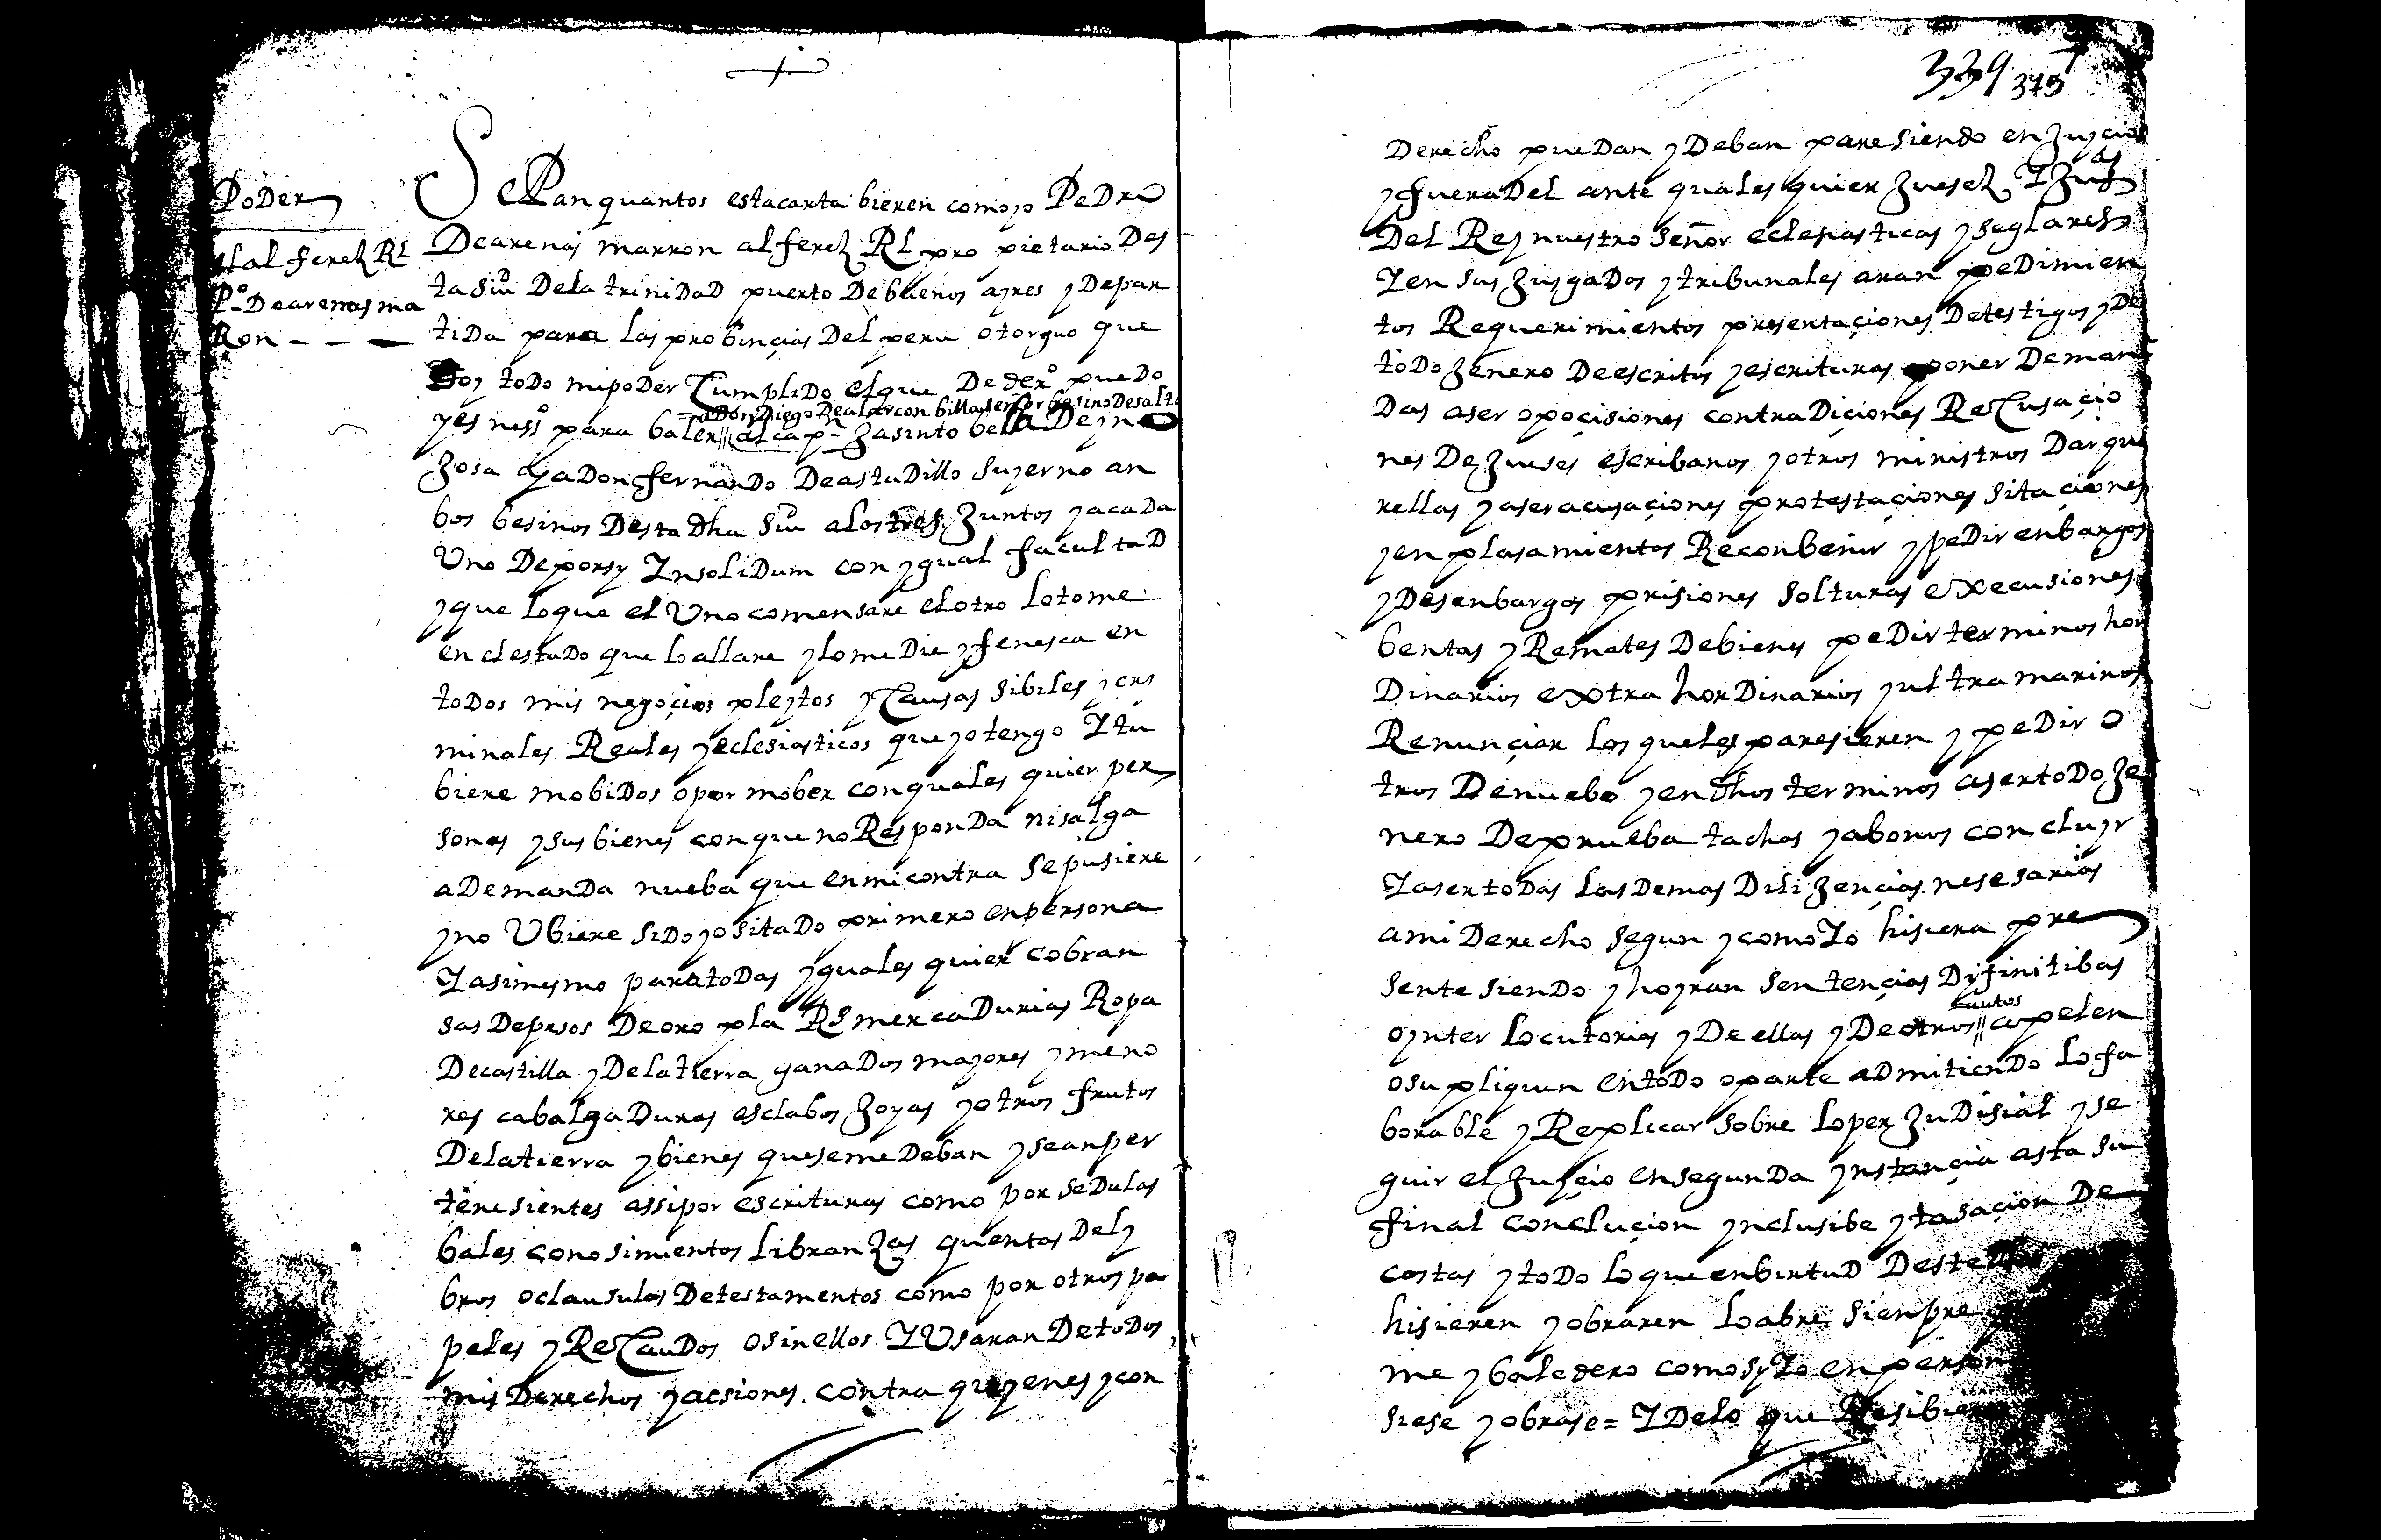 Poder
el alferez Rl
Po De arenas ma
Ron
Sepan quantos esta carta bieren como yo Pedro
De arenas marron alferez Rl propietario Des
ta siud De la trinidad puerto De buenos ayres y De par
tida para las probinçias Del peru otorguo que
Doy todo mi poder Cumplido el que De dero puedo
= a Don Diego De alarcon billaseñor besino De salta
y es nesso para baler // al capn Jasinto bela De yno
Josa y a Don fernando De astudillo su yerno an
bos besinos Desta Dha siud a los tres Juntos y a cada
Uno De por sy Insolidum con ygual facultad
y que lo que el Uno comensare el otro lo tome
en el estado que lo allare y lo medie y fenesca en
todos mis negoçios pleytos y Causas sibiles y cri
minales Reales y eclesiasticos que yo tengo I tu
biere mobidos o por mober con quales quier per
sonas y sus bienes con que no Responda ni salga
a Demanda nueba que en mi contra se pusiere
y no Ubiere sido yo sitado primero en persona
I asimesmo para todas y quales quier cobran
sas De pesos De oro pla Rs mercadurias Ropa
De castilla y De la tierra ganados mayores y meno
res cabalgaduras esclabos Joyas y otros frutos
De la tierra y bienes que se me Deban y sean per
tenesientes assi por escrituras como por sedulas
bales conosimientos libranzas quentas De ly
bros o clausulas De testamentos como por otros pa
peles y ReCaudos o sin ellos I Usaran De todos
mis Derechos y acsiones contra quyenes y con
339 375
Derecho puedan y Deban paresiendo en Juycio
y fuera Del ante quales quier Juesez I Jusas
Del Rey nuestro señor eclesiasticas y seglares
I en sus Jusgados y tribunales aran pedimien
tos Requerimientos presentaçiones De testigos y De
todo Jenero De escritos y escrituras poner Deman
Das aser opoçisiones contradiçiones ReCusaçio
nes De Jueses escribanos y otros ministros Dar que
rellas y aser acusaçiones protestaçiones sitaçiones
y enplasamientos Reconbenir y pedir enbargos
y Desenbargos prisiones solturas execusiones
bentas y Remates De bienes pedir terminos hor
Dinarios extra hordinarios y ultramarinos
Renunçiar los que les paresieren y pedir o
tros De nuebo y en Dhos terminos aser todo Je
nero De prueba tachas y abonos concluyr
I aser todas las Demas Dilijençias nesesarias
a mi Derecho segun y como Io hisiera pre
sente siendo y hoyran sentençias Difinitibas
autos
o ynterlocutorias y De ellas y De otros // apelen
o supliquen en todo o parte admitiendo lo fa
borable y Replicar sobre lo perjudisial y se
guir el Juiçio en segunda ynstançia asta su
final conclucion ynclusibe y tasaçion De
costas y todo lo que en birtud Deste
hisieren y obraren lo abre sienpre
me y baledero como sy Io en person
siese y obrase = I De lo que Resibieren